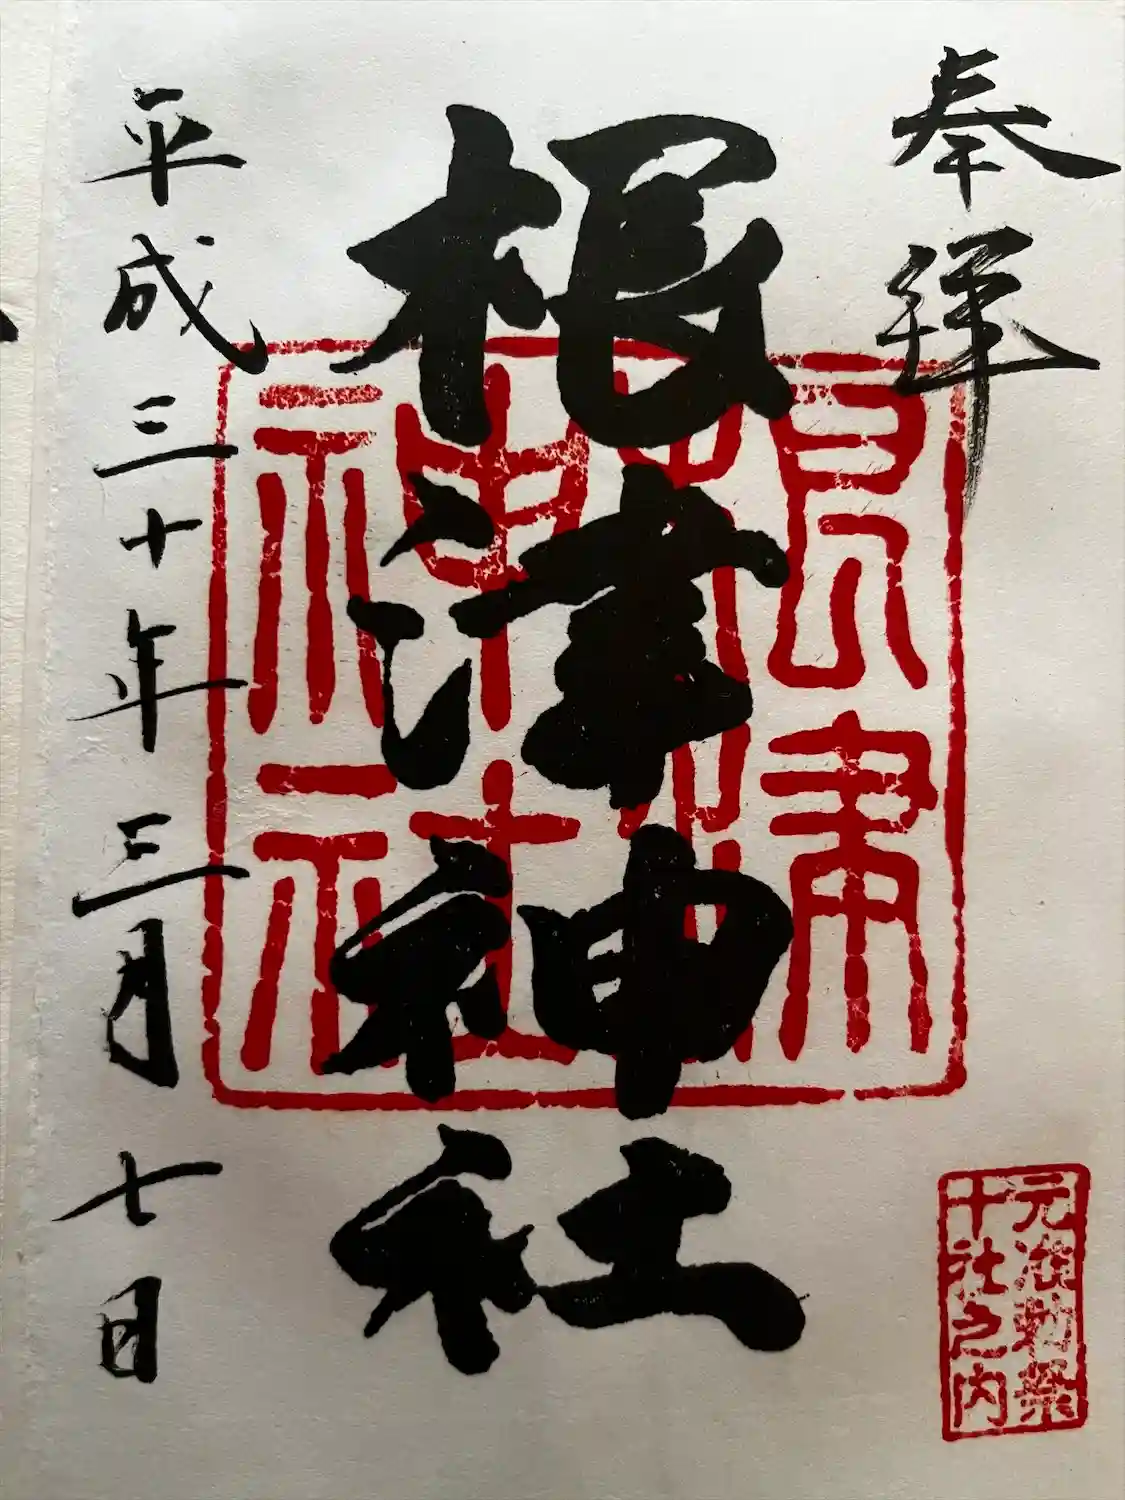 奉拝
根津神社
根津神社
元准勅祭
十社之内
平成三十年三月七日